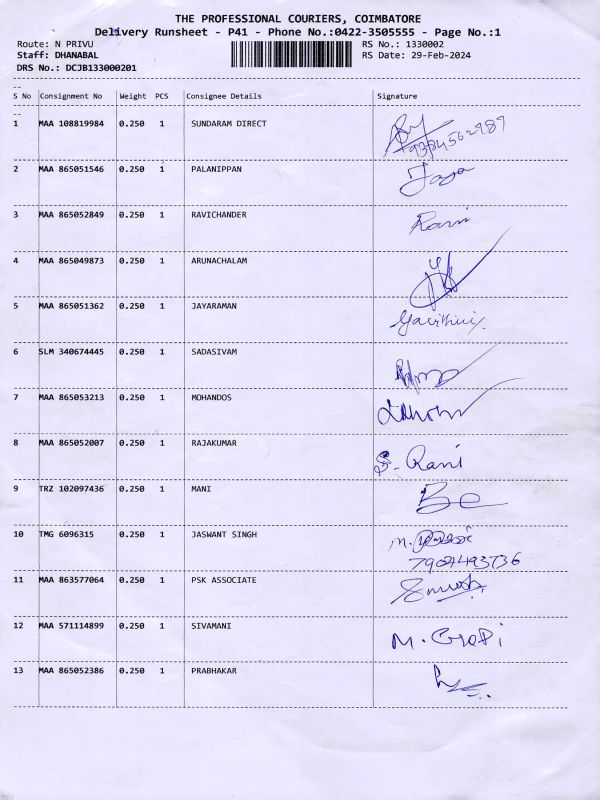 THE PROFESSIONAL COURIERS, COIMBATORE
Delivery Runsheet - P41 - Phone No.:0422-3505555 - Page No.:1
Route: N PRIVU RS No.: 1330002
Staff: DHANABAL RS Date: 29-Feb-2024
DRS No.: DCJB133000201
--
S No Consignment No Weight PCS Consignee Details Signature
--
1 MAA 108819984 0.250 1 SUNDARAM DIRECT
2 MAA 865051546 0.250 1 PALANIPPAN Jaya
3 MAA 865052849 0.250 1 RAVICHANDER Rani
4 MAA 865049873 0.250 1 ARUNACHALAM
5 MAA 865051362 0.250 1 JAYARAMAN
6 SLM 340674445 0.250 1 SADASIVAM
7 MAA 865053213 0.250 1 MOHANDOS
8 MAA 865052007 0.250 1 RAJAKUMAR S. Rani
9 TRZ 102097436 0.250 1 MANI
10 TMG 6096315 0.250 1 JASWANT SINGH M.
11 MAA 863577064 0.250 1 PSK ASSOCIATE
12 MAA 571114899 0.250 1 SIVAMANI M. Gopi
13 MAA 865052386 0.250 1 PRABHAKAR